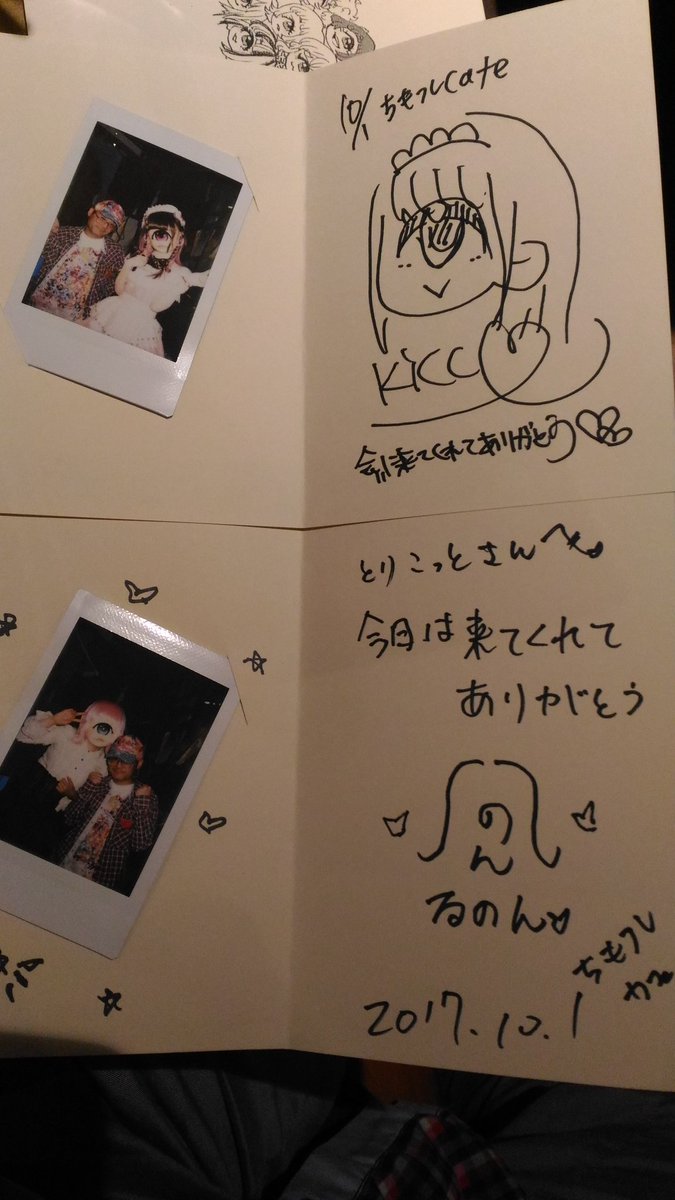 10/1 ちもフレCafe
KiCC
会いに来てくれてありがとう
とりこっとさんへ
今日は来てくれて
ありがとう
のん
るのん
ちもフレ
カフェ
2017.10.1